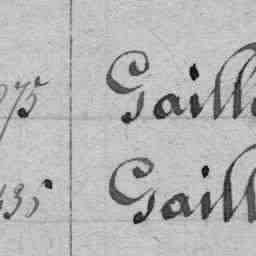 75 Gaill
35 Gaill